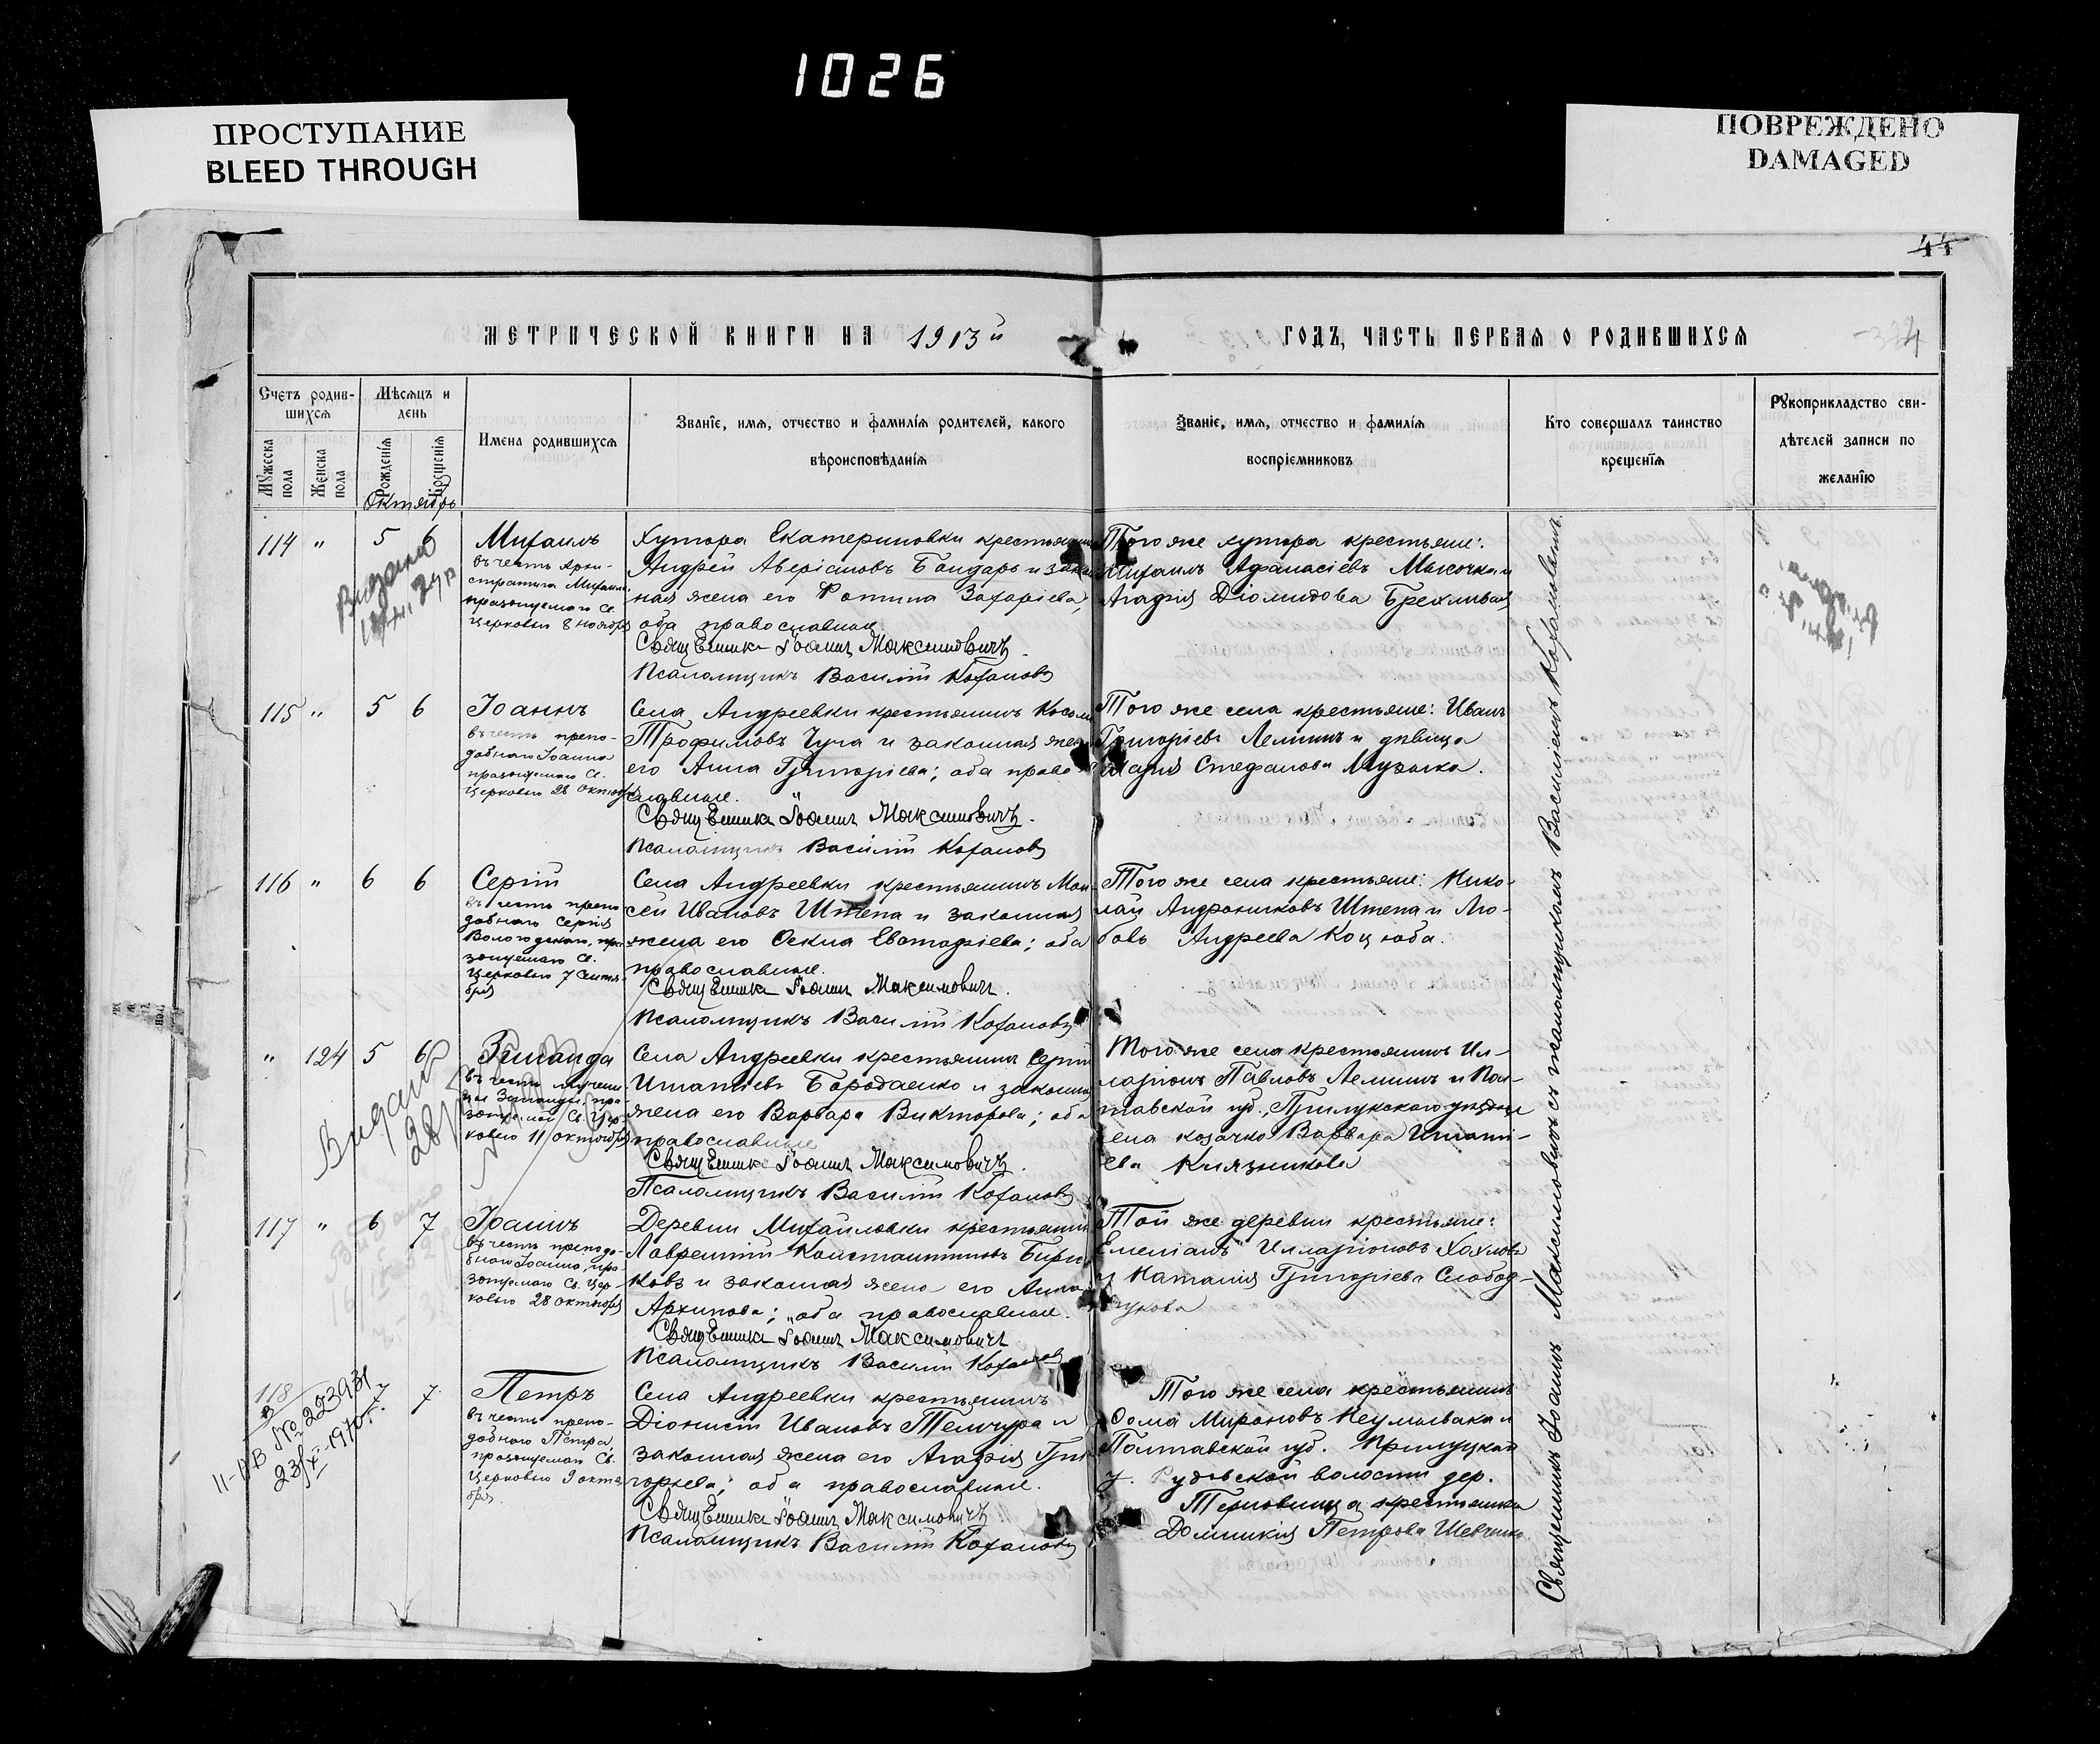 1026
ПРОСТУПАНИЕ
BLEED THROUGH
ПОВРЕЖДЕНО
DAMAGED
44
МЕТРИЧЕСКОЙ КНИГИ НА 1913й
ГОДЪ, ЧАСТЬ ПЕРВАЯ О РОДИВШИХСЯ
Счетъ родив-
шихся
Мужеска
пола
Женска
пола
Мѣсяцъ и
день
Рожденія
Крещенія
Имена родившихся
Званіе, имя, отчество и фамилія родителей, какого
вѣроисповѣданія
Званіе, имя, отчество и фамилія
воспріемниковъ
Кто совершалъ таинство
крещенія
Рукоприкладство сви-
дѣтелей записи по
желанію
Октябрь
114 " 5 6
Михаилъ
въ честь Архи-
стратига Михаила,
празднуемаго Св.
Церковью 8 ноября
Хутора Екатериновки крестьянинъ
Андрей Аверіановъ Бондарь и закон-
ная жена его Фотина Захаріева,
оба православные.
Священникъ Іоаннъ Максимовичъ.
Псаломщикъ Василій Кохановъ
Того же хутора крестьяне:
Михаилъ Афанасіевъ и
Агафія Діомидова
115 " 5 6
Іоаннъ
въ честь препо-
добнаго Іоанна
празднуемаго Св.
Церковью 28 октября
Села Андреевки крестьянинъ Косьма
Трофимовъ Чуча и законная жена
его Анна Григоріева; оба право-
славные.
Священникъ Іоаннъ Максимовичъ.
Псаломщикъ Василій Кохановъ
Того же села крестьяне: Иванъ
Григоріевъ Лемишъ и дѣвица
Марія Стефанова Музыка.
116 " 6 6
Сергій
въ честь препо
добнаго Сергія
Вологодскаго, пра
зднуемаго Св.
Церковью 7 октя-
бря
Села Андреевки крестьянинъ Мои-
сей Ивановъ Штепа и законная
жена его Фекла Евстафіева; оба
православные.
Священникъ Іоаннъ Максимовичъ.
Псаломщикъ Василій Кохановъ
Того же села крестьяне: Нико-
лай Андрониковъ Штепа и Лю-
бовь Андреева Коцюба.
" 124 5 6
Зинаида
въ честь мучени-
цы Зинаиды, пра-
зднуемой Св. Цер-
ковью 11 октября
Села Андреевки крестьянинъ Сергій
Игнатіевъ Бородаенко и законная
жена его Варвара Викторова; оба
православные
Священникъ Іоаннъ Максимовичъ.
Псаломщикъ Василій Кохановъ
Того же села крестьянинъ Ил-
ларіонъ Павловъ Лемишъ и Пол-
тавской губ., Прилукского уѣзда
села козачка Варвара Игнатi-
ева
117 " 6 7
Іоаннъ
въ честь преподо-
бнаго Іоанна, пра-
зднуемаго Св. Цер-
ковью 28 октября
Деревни Михайловки крестьянинъ
Лаврентій Константиновъ Бирю-
ковъ и законная жена его Анна
Архипова; оба православные.
Священникъ Іоаннъ Максимовичъ
Псаломщикъ Василій Кохановъ
Той же деревни крестьяне:
Емеліанъ Илларіоновъ Хохловъ
и Наталія Григоріева Слобод-
чукова
118 7 7
II-ЯВ № 223931
23/X 1970г.
Петръ
въ честь препо-
добнаго Петра,
празднуемаго Св.
Церковью 9 октя
бря.
Села Андреевки крестьянинъ
Діонисій Ивановъ Темчура и
законная жена его Агафія Гри-
горіева; оба православные.
Священникъ Іоаннъ Максимовичъ
Псаломщикъ Василій Кохановъ
Того же села крестьянинъ
Фома Мироновъ Неумывака и
Полтавской губ. Прилуцкаго
у. Рудовской волости дер.
Терновища крестьянка
Домникія Петрова Шевченко.
Священникъ Іоаннъ Максимовичъ съ псаломщикомъ Василіемъ Кохановымъ.